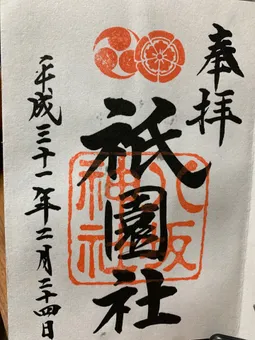 奉拝
祇園社
八坂神社
平成三十一年二月二十四日